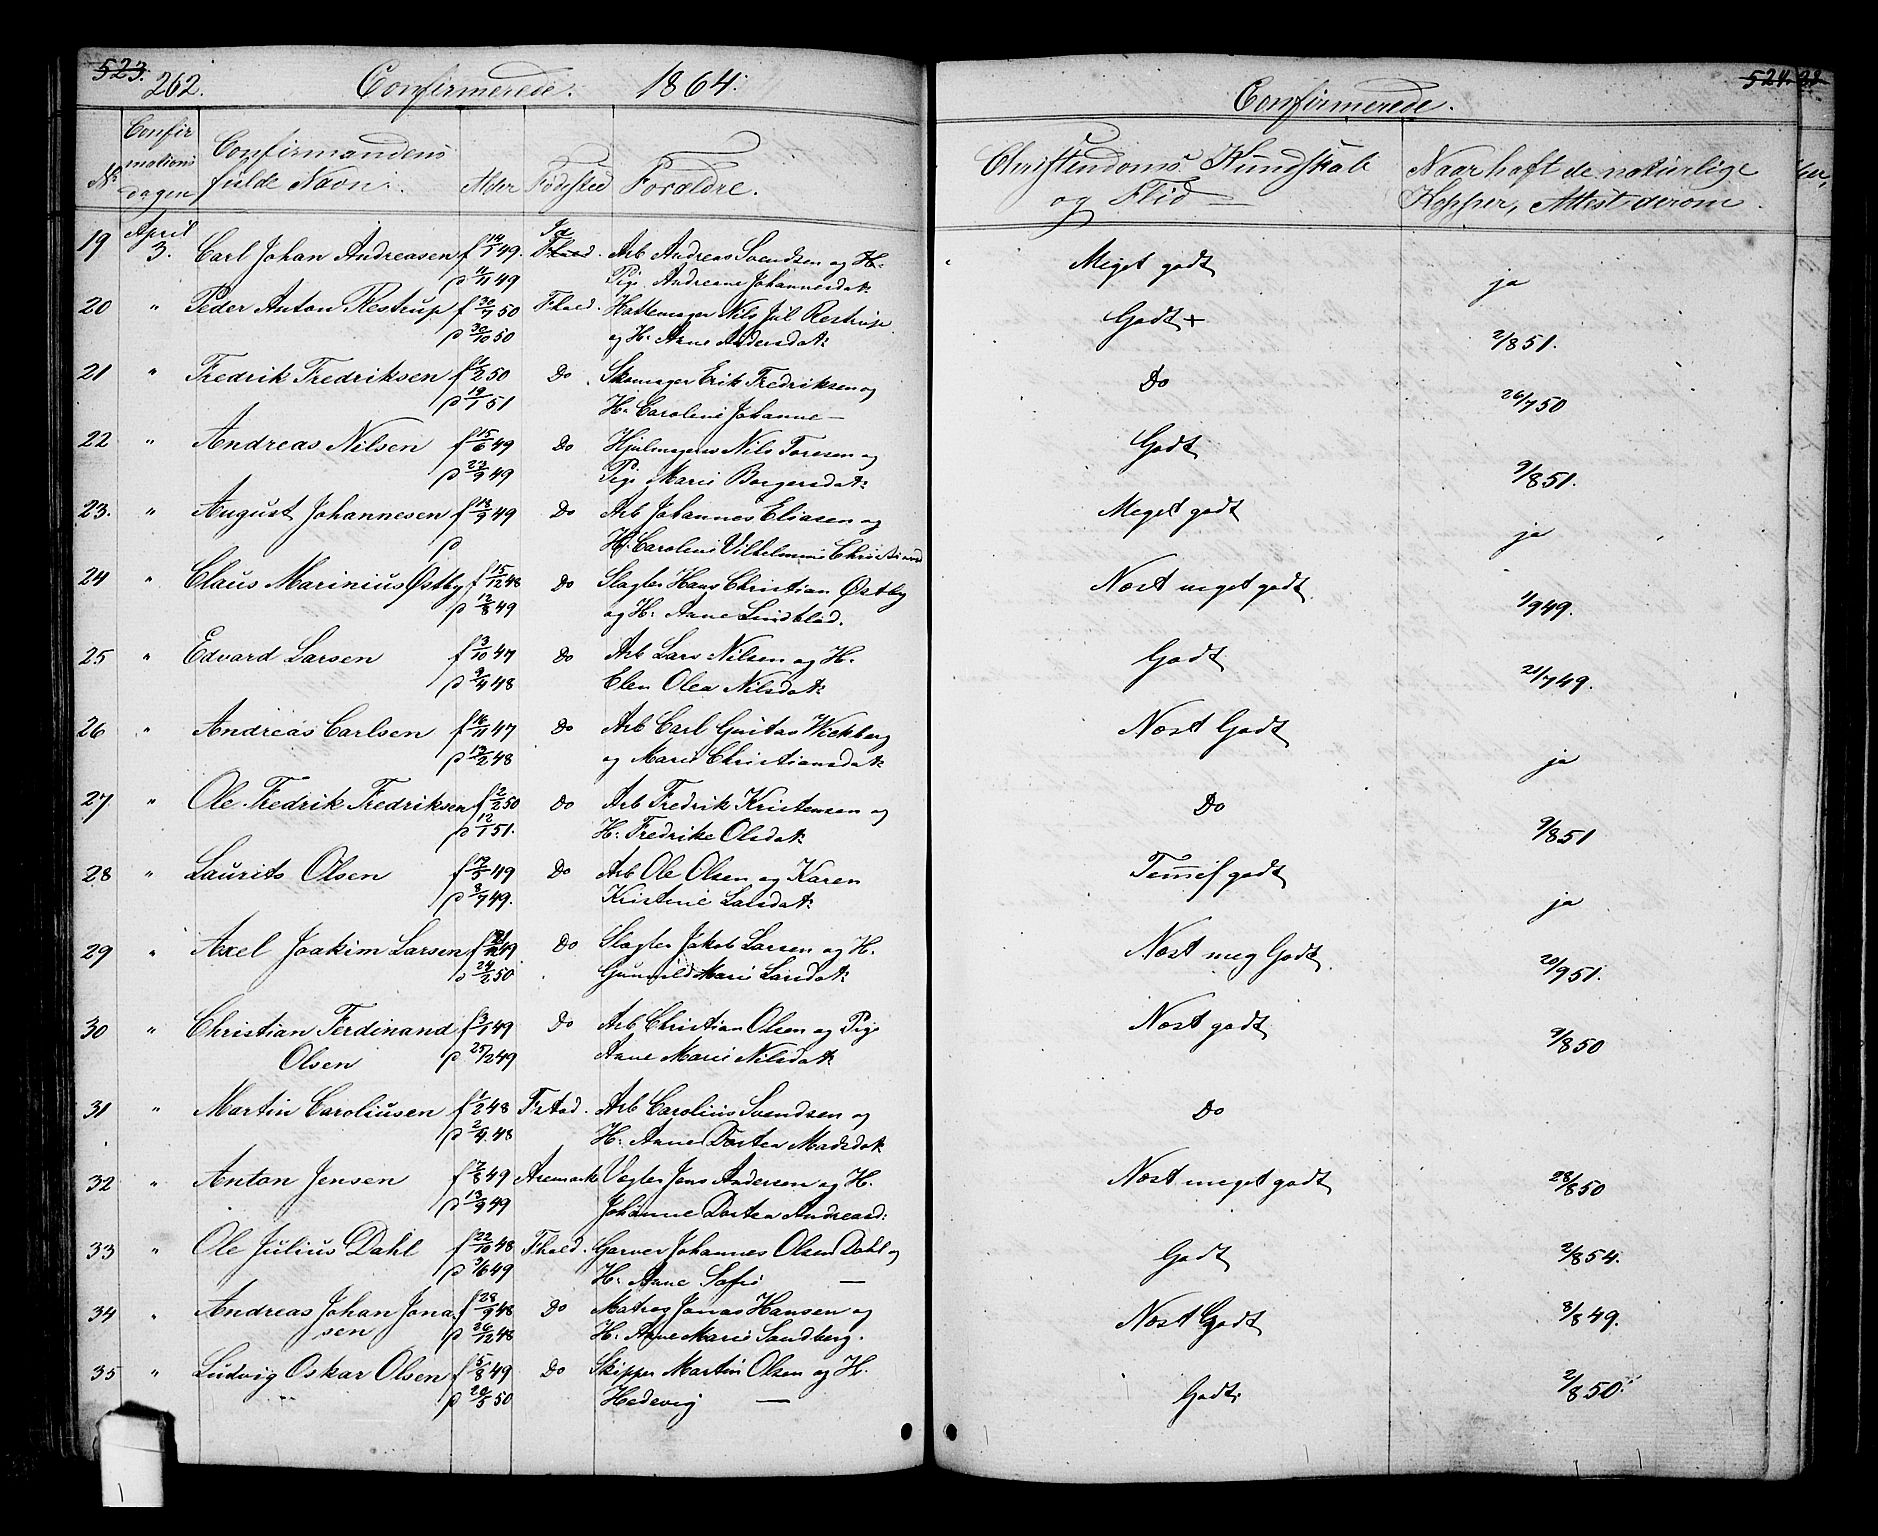 523. 262. Confirmerede. 1864.
No Confirmationsdagen Confirmandens fulde Navn. Alder Fødested Forældre.
19 April 3. Carl Johan Andreasen f 14/7 49. Fhald. Arb Andreas Svendsen og H.
p 11/11 49 Pige. Andreane Johannesdat:
20 " Peder Anton Restrup f 30/7 50 Fhald. Hattemager Nils Jul Restrup
p 30/10 50 og H. Anne Andersdat:
21 " Fredrik Fredriksen f 1/2 50 Do Skomager Erik Fredriksen og
p 19/1 51 H. Caroline Johanne —
22 " Andreas Nilsen f 15/6 49 Do Hjulmagersv Nils Toresen og
p 23/9 49 Pige Marie Borgersdat:
23. " August Johannesen f 18/9 49 Do Arb Johannes Eliasen og
p H. Caroline Vilhelmine Christiansd
24 " Claus Marinius Østby f 15/12 48 Do Slagter Hans Christian Østby
p 12/8 49 og H. Anne Lindblad.
25 " Edvard Larsen f 3/10 47 Do Arb Lars Nilsen og H.
p 9/4 48 Elen Olea Nilsdat:
26 " Andreas Carlsen f 16/11 47 Do Arb Carl Gustav Wickberg
p 13/2 48 og Marie Christiansdat:
27 " Ole Fredrik Fredriksen f 2/2 50 Do Arb Fredrik Kristensen og
p 12/1 51. H. Fredrike Olsdat:
28 " Laurits Olsen f 12/5 49 Do Arb Ole Olsen og Karen
p 8/7 49. Kristine Larsdat:
29 " Axel Joakim Larsen f 49 Do Slagter Jakob Larsen og H.
p 24/2 50 Gunnild Marie Larsdat:
30 " Christian Ferdinand f 3/1 49 Do Arb Christian Olsen og Pige
Olsen p 25/2 49 Anne Marie Nilsdat:
31 " Martin Caroliusen f 1/2 48 Frstad. Arb Carolius Svendsen og
p 2/4 48 H. Anne Dortea Madsdat
32 " Anton Jensen f 7/8 49 Aremark Vegter Jens Andersen og H.
p 13/9 49 Johanne Dortea Andreasd:
33 " Ole Julius Dahl f 22/10 48 Fhald. Garver Johannes Olsen Dahl og
p 3/6 49 H. Anne Sofie —
34 " Andreas Johan Jona- f 28/9 48 Do Matros Jonas Hansen og
sen p 26/12 48 H. Anne Marie Sandberg.
35 " Ludvig Oskar Olsen f 15/8 49 Do Skipper Martin Olsen og H.
p 20/5 50 Hedevig —
524.
Confirmerede.
Christendoms Kundskab og Flid — Naar haft de naturlige Kopper, Attest derom.
Meget godt ja
Godt + 2/8 51.
Do 26/7 50
Godt 9/8 51.
Meget godt ja
Næst meget godt 1/9 49.
Godt 21/7 49.
Næst Godt ja
Do 9/8 51
Temmel godt ja
Næst meg Godt 20/9 51.
Næst godt 9/8 50
Do
Næst meget godt 28/8 50
Godt 2/8 54.
Næst Godt 8/8 49.
Godt 2/8 50.